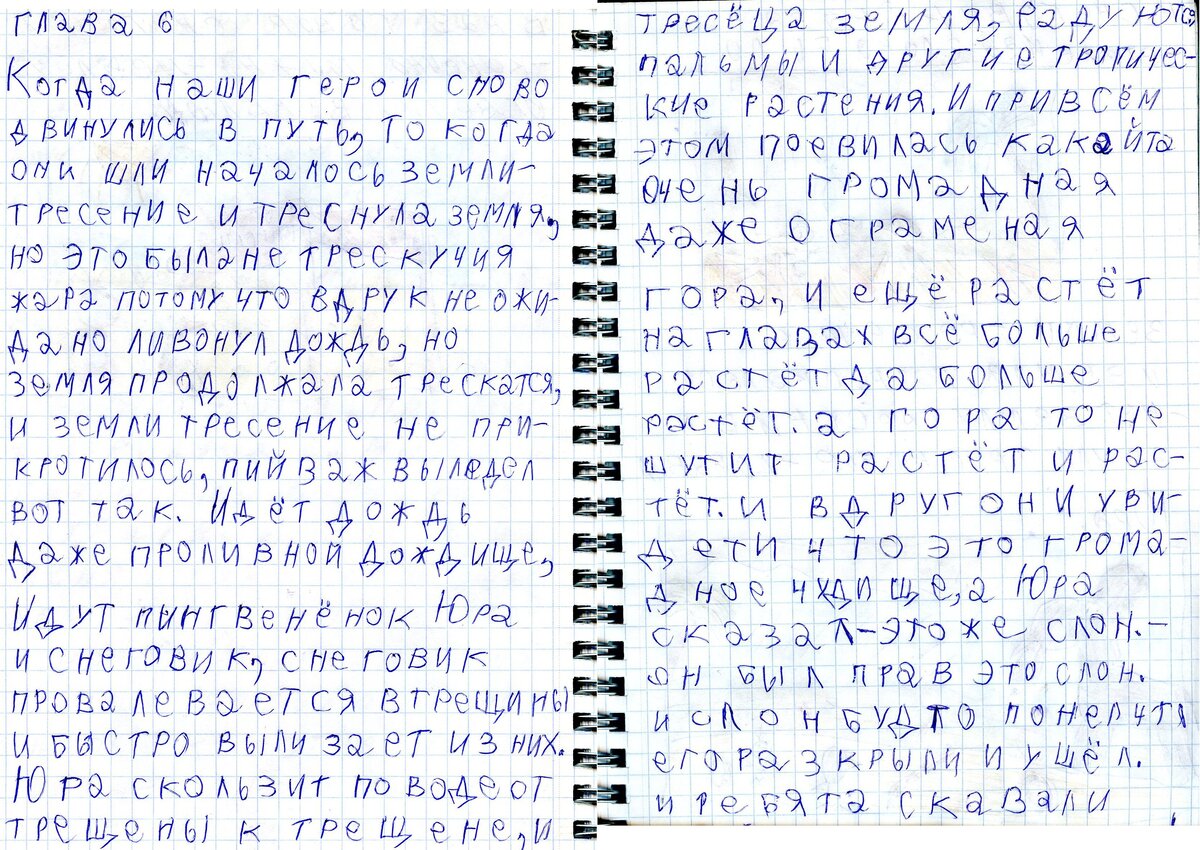 глава 6
Когда наши герои сново
двинулись в путь, то когда
они шли началось земли-
тресение и треснула земля,
но это была не трескучия
жара потому что вдрук не ожи-
дано ливонул дождь, но
земля продолжала трескатся,
и земли тресение не при-
кротилось, пийзаж выледел
вот так. Идёт дождь
даже проливной дождище,
Идут пингвенёнок Юра
и снеговик, снеговик
провалевается в трещины
и быстро вылизает из них.
Юра скользит по воде от
трещены к трещене, и
тресёща земля, радуются
пальмы и другие тропичес-
кие растения. И при всём
этом поевилась какайта
очень громадная
даже ограменая
гора, и ещё растёт
на глазах всё больше
растёт да больше
растёт. а гора то не
шутит растёт и рас-
тёт. И вдруг они уви-
дети что это грома-
дное чудище, а Юра
сказал - это же слон. -
он был прав это слон.
и слон будто понел что
его разкрыли и ушёл.
и ребята сказали